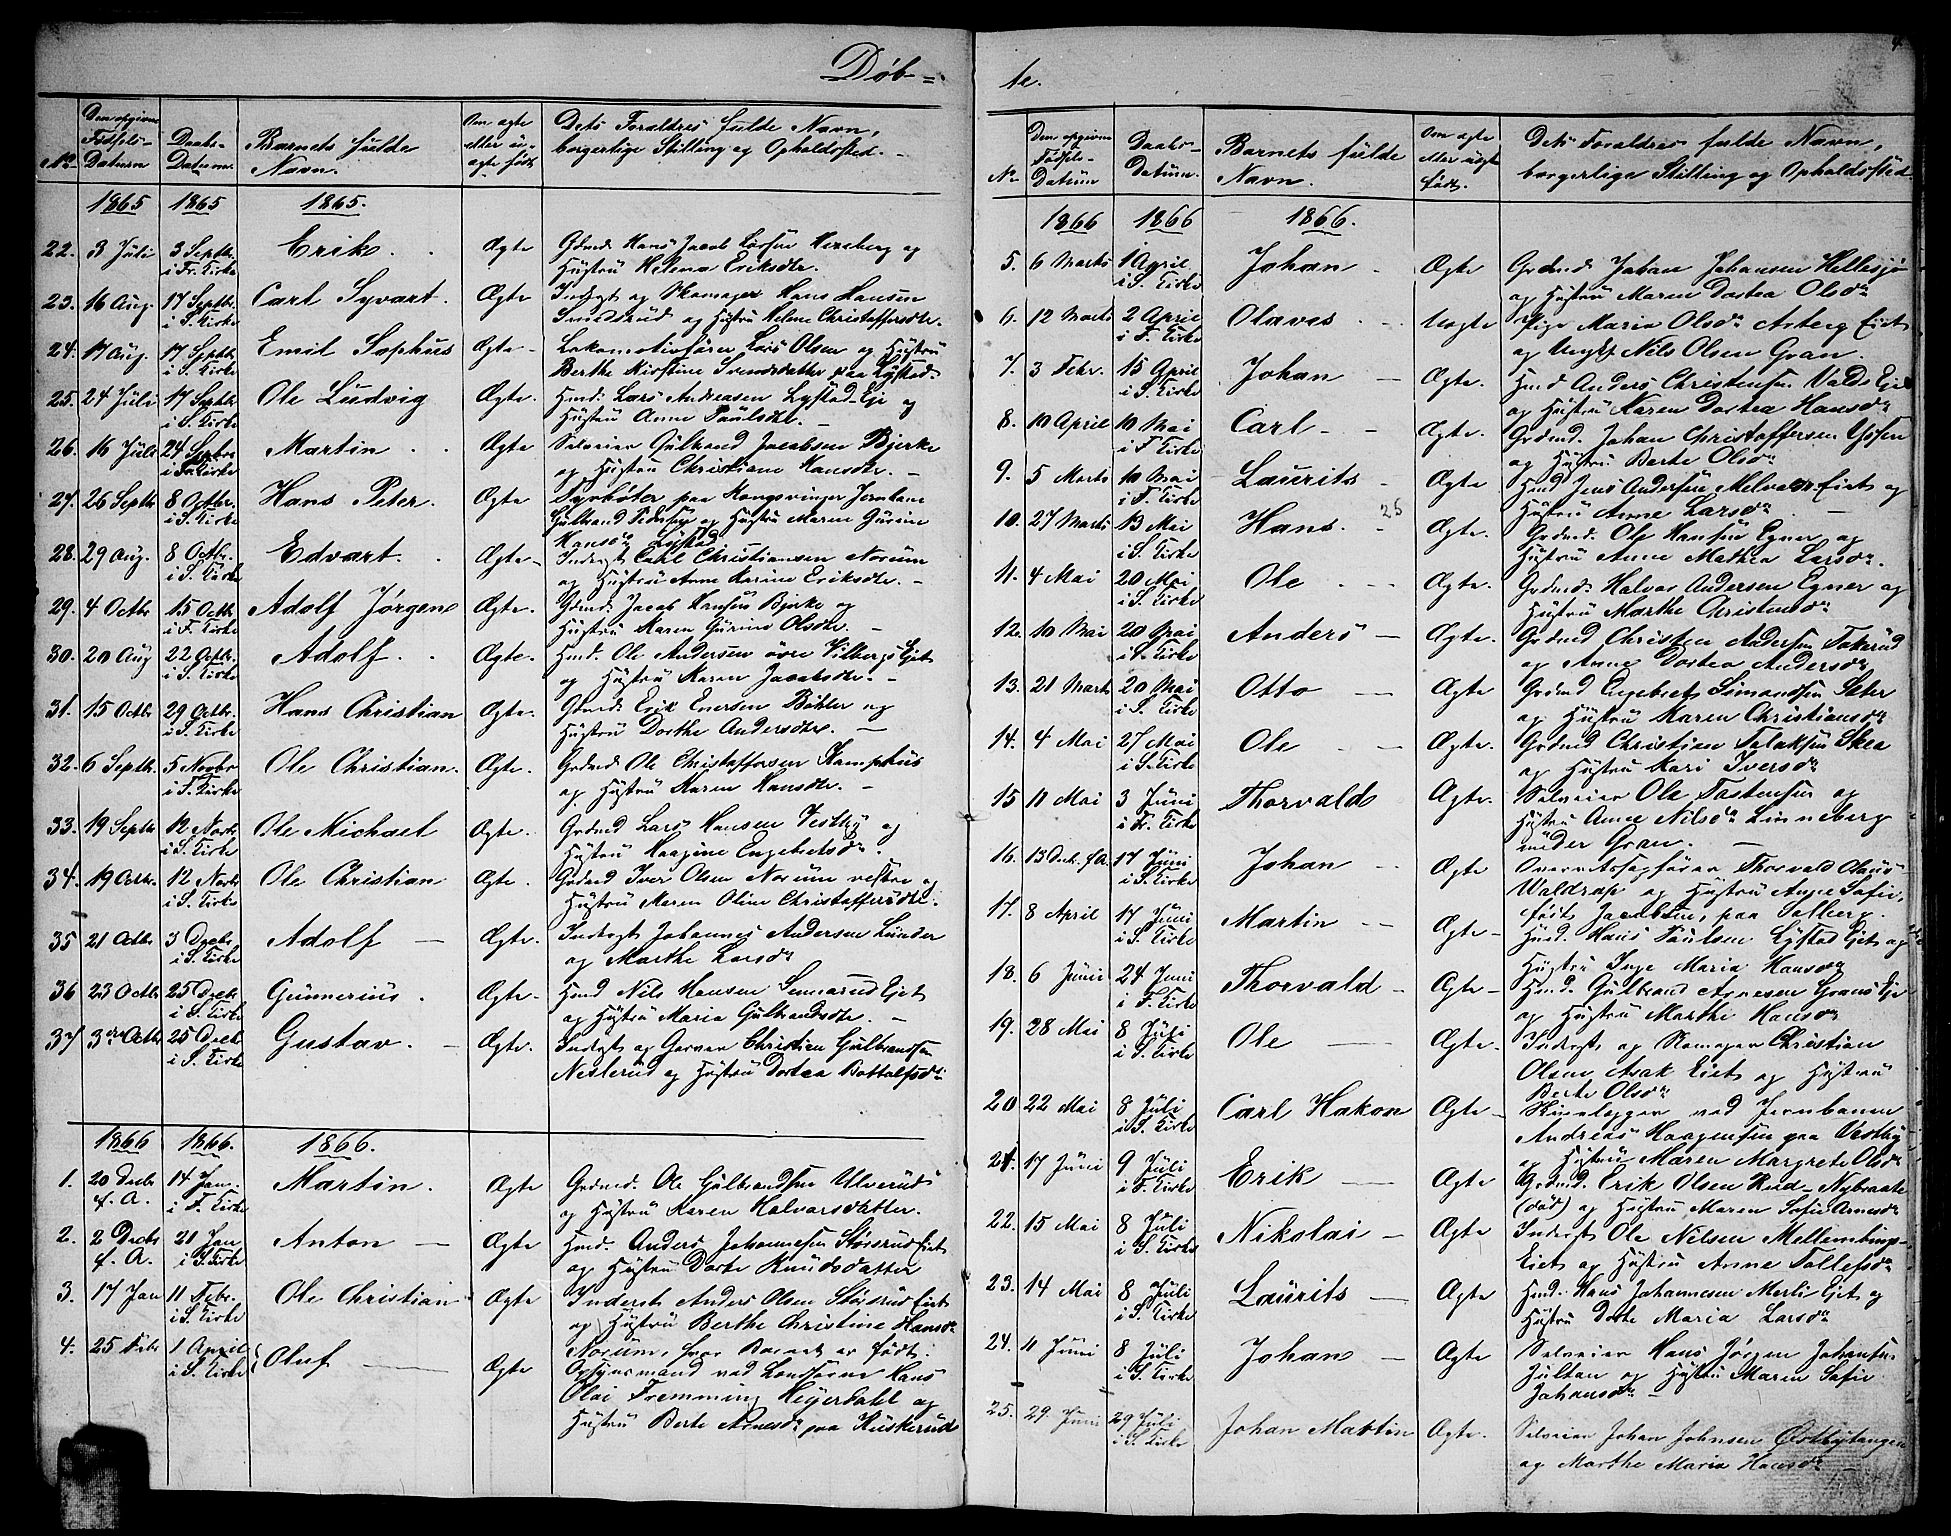 Døb-
No Den opgivne Fødsels-Datum Daabs-Datum Barnets fulde Navn. Om ægte eller uægte født Dets Foraldres fulde Navn, borgerlige Stilling og Opholdssted.
1865 1865 1865.
22. 3 Juli 3 Septbr. i Fr. Kirke Erik Ægte Grdmd. Hans Jacob Larsen Herseberg og
Hustru Helena Eriksdtr.
23. 16 Aug. 17 Septbr. i S. Kirke Carl Syvart. Ægte. Inderst og Skomager Hans Hansen
og Hustru Helene Christoffersdtr.
24. 17 Aug. 17 Septbr. i S. Kirke Emil Sophus Ægte Lokomotivfører Lars Olsen og Hustru
Berthe Kirstine Svendsdatter paa Lystad.
25. 24 Juli 17 Septbr. i S. Kirke Ole Ludvig Ægte. Husmd. Lars Andreasen Lystad-Eje og
Hustru Anne Paulsdtr.
26. 16 Juli 24 Septbr. i Fr. Kirke Martin Ægte Selveier Gulbrand Jacobsen Bjerke
og Hustru Christiane Hansdtr.
27. 26 Septbr 8 Octbr. i S. Kirke Hans Peter. Ægte Fyrbøter paa Kongsvinger Jernbane
Gulbrand Pedersen og Hustru Maren Gurine
Hansdr Lystad
28. 29 Aug. 8 Octbr. i S. Kirke Edvart. Ægte Inderst Carl Christiansen Norum
og Hustru Anne Karine Eriksdtr.
29. 4 Octbr 15 Octbr i F. Kirke Adolf Jørgen Ægte. Grdmd. Jacob Hansen Bjerke og
Hustru Maren Gurine Olsdtr.
30. 20 Aug 22 Octbr. i S. Kirke Adolf. Ægte. Husmd. Ole Andersen øvre Vilbergs Ejet
og Hustru Karen Jacobsdtr.
31. 15 Octbr 29 Octbr. i S. Kirke Hans Christian Ægte. Grdmd. Erik Enersen Bøhler og
Hustru Dorthe Andersdtr.
32. 6 Septbr. 5 Novbr i F. Kirke Ole Christian. Ægte. Grdmd. Ole Christoffersen Kamphus
og Hustru Karen Hansdtr.
33. 19 Septbr 12 Novbr i S. Kirke Ole Michael Ægte. Grdmd Lars Hansen Vestby og
Hustru Haagine Engebretsdr.
34. 19 Octbr. 12 Novbr i S. Kirke Ole Christian Ægte. Grdmd Iver Olsen Norum vestre og
Hustru Maren Oline Christoffersdtr.
35 21 Octbr 3 Decbr. i S. Kirke Adolf Ægte. Inderst Johannes Andersen Lunder
og Marthe Larsdr
36 23 Octbr 25 Decbr i S. Kirke Gunnerius. Ægte. Husmd Nils Hansen Ejet
og Hustru Maria Gulbrandsdtr.
37 3die Octbr 25 Decbr i S. Kirke Gustav. Ægte. Inderst og Garver Christian Gulbrandsen
Neslerud og Hustru Dortea Bottolfsdr
1866 1866. 1866.
1. 20 Decbr f. A. 14 Jan. i F. Kirke Martin. Ægte Grdmd. Ole Gulbrandsen Ulverud
og Hustru Karen Halvorsdatter.
2. 2 Decbr f. A. 21 Jan i S. Kirke Anton Ægte Husmd. Anders Johannesen Størsrud Eiet
og Hustru Dorte Knudsdatter
3. 17 Jan 11 Febr. i S. Kirke Ole Christian Ægte Inderst Anders Olsen Størsrud Eiet
og Hustru Berthe Christine Hansdr
Norum, hvor Barnet er født.
4. 25 Febr 1 April i S. Kirke Oluf Ægte Opsynsmand ved Landsørne Hans
Olai Fremming Heyerdahl og
Hustru Berte Arnesdr paa Huskerud
te.
No Den opgivne Fødsels-Datum Daabs-Datum. Barnets fulde Navn. Om ægte eller uægte født. Dets Foraldres fulde Navn, borgerlige Stilling og Opholdssted.
1866 1866 1866.
5. 6 Marts 1 April i S. Kirke Johan Ægte Grdmd. Johan Johansen Hellesjø
og Hustru Maren Dortea Olsdr
6. 12 Marts 2 April i F. Kirke Olaves Uægte Pige Maria Olsdr Asberg Eiet
og Ungkf Nils Olsen Gran.
7. 3 Febr. 15 April i S. Kirke Johan Ægte. Husmd Anders Christensen Valds Eje
og Hustru Karen Dortea Hansdr
8. 10 April 10 Mai i F. Kirke Carl Ægte. Grdmd. Johan Christoffersen
og Hustru Berte Olsdr
9. 5 Marts 10 Mai i F. Kirke Laurits Ægte Husmd Jens Andersen Melvold Eiet og
Hustru Anne Larsdr
10. 27 Marts 13 Mai i S. Kirke Hans. 25 Ægte. Grdmd. Ole Hansen Egner og
Hustru Anne Mathea Larsdr.
11. 4 Mai 20 Mai i S. Kirke Ole Ægte. Grdmd. Halvor Andersen Egner og
Hustru Marthe
12. 10 Mai 20 Mai i S. Kirke Anders Ægte. Grdmd Christen Andersen Fakerud
og Anne Dortea Andersdr
13. 21 Marts 20 Mai i S. Kirke Otto Ægte Grdmd Engebret Simensen Sæter
og Hustru Karen Christiansdr
14. 4 Mai 27 Mai i S. Kirke Ole Ægte. Grdmd Christian Skea
og Hustru Kari Iversdr
15 11 Mai 3 Juni i Fr. Kirke Thorvald Ægte. Selveier Ole Tostensen og
Hustru Anne Nilsdr Linneberg
under Gran.
16. 13 Decb. f.A. 17 Juni i S. Kirke Johan Ægte Overretssagfører Thorvald Olaus
Waldrap og Hustru Anne Sofie,
født Jacobsen, paa Solberg.
17. 8 April 17 Juni i S. Kirke Martin Ægte Husmd. Hans Paulsen Lystad Ejet og
Hustru Inge Maria Hansdr
18. 6 Juni 24 Juni i F. Kirke Thorvald Ægte Husmd. Gulbrand Arnesen Grans Eje
og Hustru Marthe Hansdr
19. 28 Mai 8 Juli i S. Kirke Ole Ægte Inderst og Skomager Christian
Olsen Arak Eiet og Hustru
Berte Olsdr
20 22 Mai 8 Juli i S. Kirke Carl Hakon Ægte Skinnelægger ved Jernbanen
Andreas Haagensen paa Vestby
og Hustru Maren Margrete Olsdr
21. 17 Juni 9 Juli i F. Kirke Erik Ægte Grdmd. Erik Olsen Rud-Nybraate
(død) og Hustru Maren Sofie Arnesdr
22. 15 Mai 8 Juli i S. Kirke Nikolai Ægte Inderst Ole Nilsen Mellembings-
Eiet og Hustru Anne Tollefsdr
23. 14 Mai 8 Juli i S. Kirke Laurits Ægte Husmd. Hans Johannesen Merli Ejet og
Hustru Dorte Maria Larsdr
24. 11 Juni 8 Juli i S. Kirke Johan Ægte Selveier Hans Jørgen Johansen
Jultan og Hustru Maren Sofie
Johansdr
25. 29 Juni 29 Juli i S. Kirke Johan Martin Ægte. Selveier Johan Johnsen Østbytangen
og Marthe Maria Hansdr